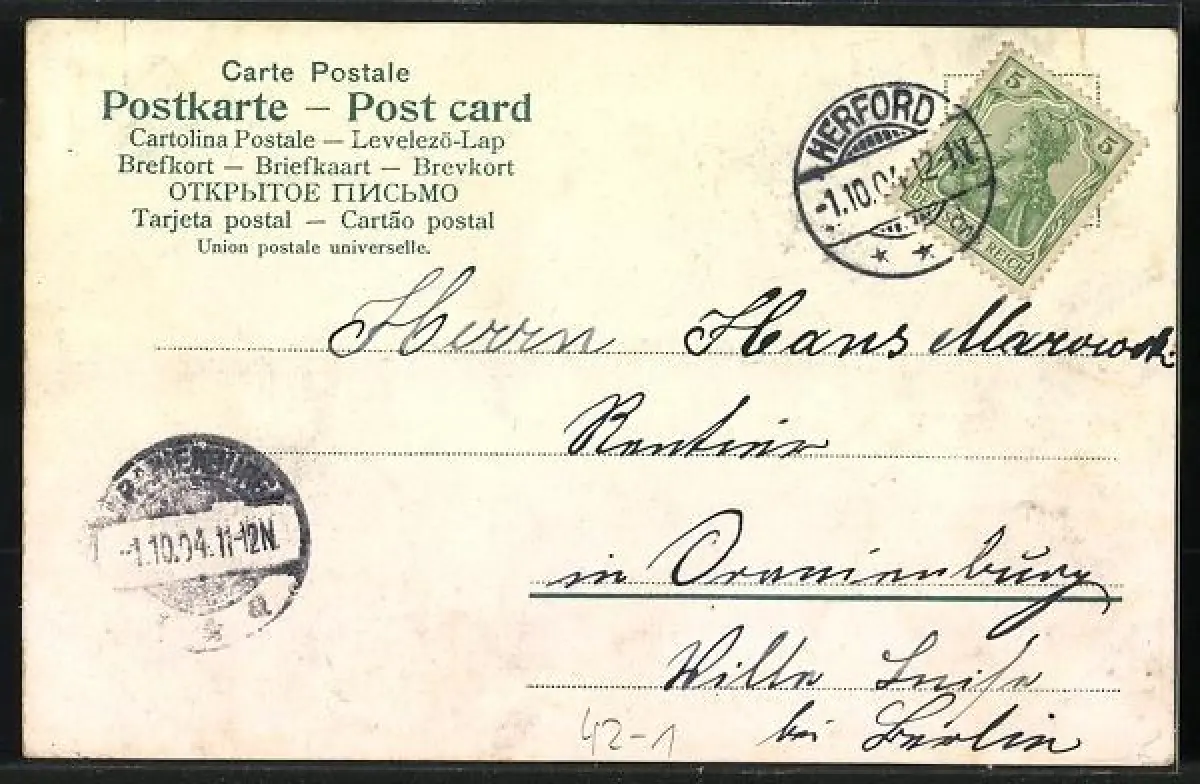 Carte Postale
Postkarte – Post card
Cartolina Postale — Levelezö-Lap
Brefkort — Briefkaart — Brevkort
ОТКРЫТОЕ ПИСЬМО
Tarjeta postal — Cartão postal
Union postale universelle.
HERFORD
-1.10.04. 12-1N.
5 5
DEUTSCHES REICH
Herrn Hans
Rentier
in Oranienburg
Villa Luise
bei Berlin
ORANIENBURG
-1.10.04. 11-12N.
a
42-1